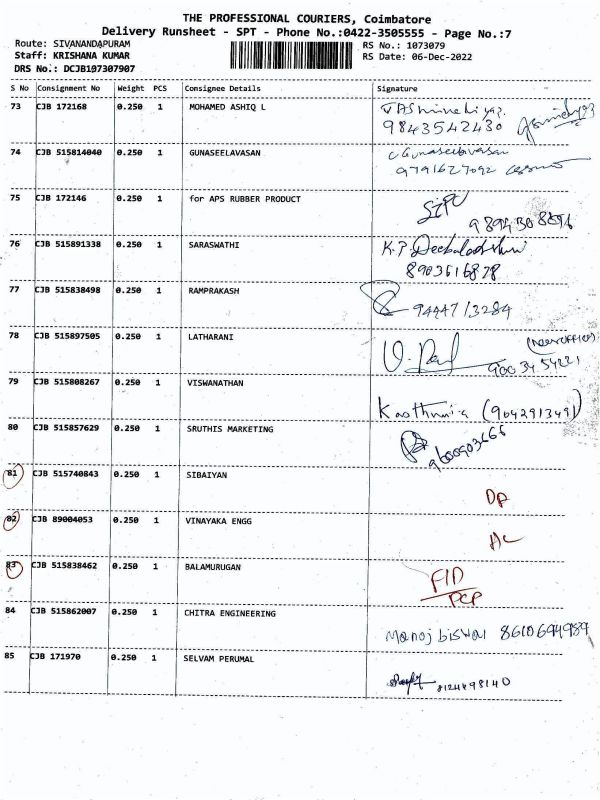 THE PROFESSIONAL COURIERS, Coimbatore
Delivery Runsheet - SPT - Phone No.:0422-3505555 - Page No.:7
Route: SIVANANDAPURAM RS No.: 1073079
Staff: KRISHANA KUMAR RS Date: 06-Dec-2022
DRS No.: DCJB107307907
S No Consignment No Weight PCS Consignee Details Signature
73 CJB 172168 0.250 1 MOHAMED ASHIQ L
9843542430
74 CJB 515814040 0.250 1 GUNASEELAVASAN C Gunaseelavasan
9791627092
75 CJB 172146 0.250 1 for APS RUBBER PRODUCT
76 CJB 515891338 0.250 1 SARASWATHI K.P. Deebalakshmi
8903616878
77 CJB 515838498 0.250 1 RAMPRAKASH
9444713284
78 CJB 515897505 0.250 1 LATHARANI
9003454221
79 CJB 515808267 0.250 1 VISWANATHAN
(9042913491)
80 CJB 515857629 0.250 1 SRUTHIS MARKETING
9600903666
81 CJB 515740843 0.250 1 SIBAIYAN
DP
82 CJB 89004053 0.250 1 VINAYAKA ENGG
83 CJB 515838462 0.250 1 BALAMURUGAN FID
PCP
84 CJB 515862007 0.250 1 CHITRA ENGINEERING
Manoj biswal 8610694989
85 CJB 171970 0.250 1 SELVAM PERUMAL
8124498140